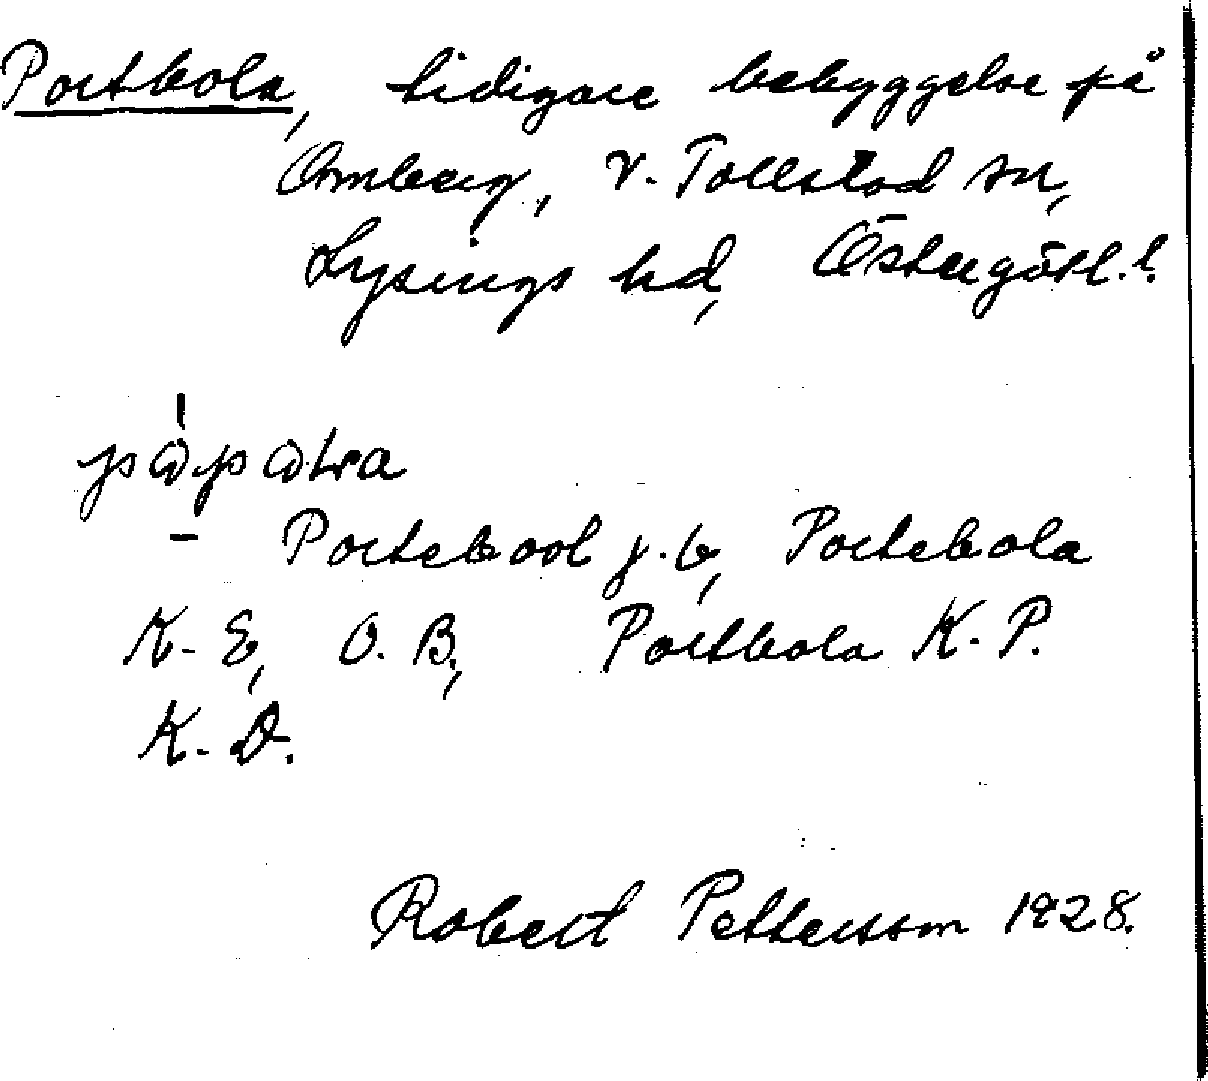 Portbola, tidigare bebyggelse på
Omberg, V. Tollstad sn,
Lysings hd, Östergötl. l.
Portebool j.b, Portebola
K. E, O. B., Portbola K. P.
K. D.
Robert Pettersson 1928.